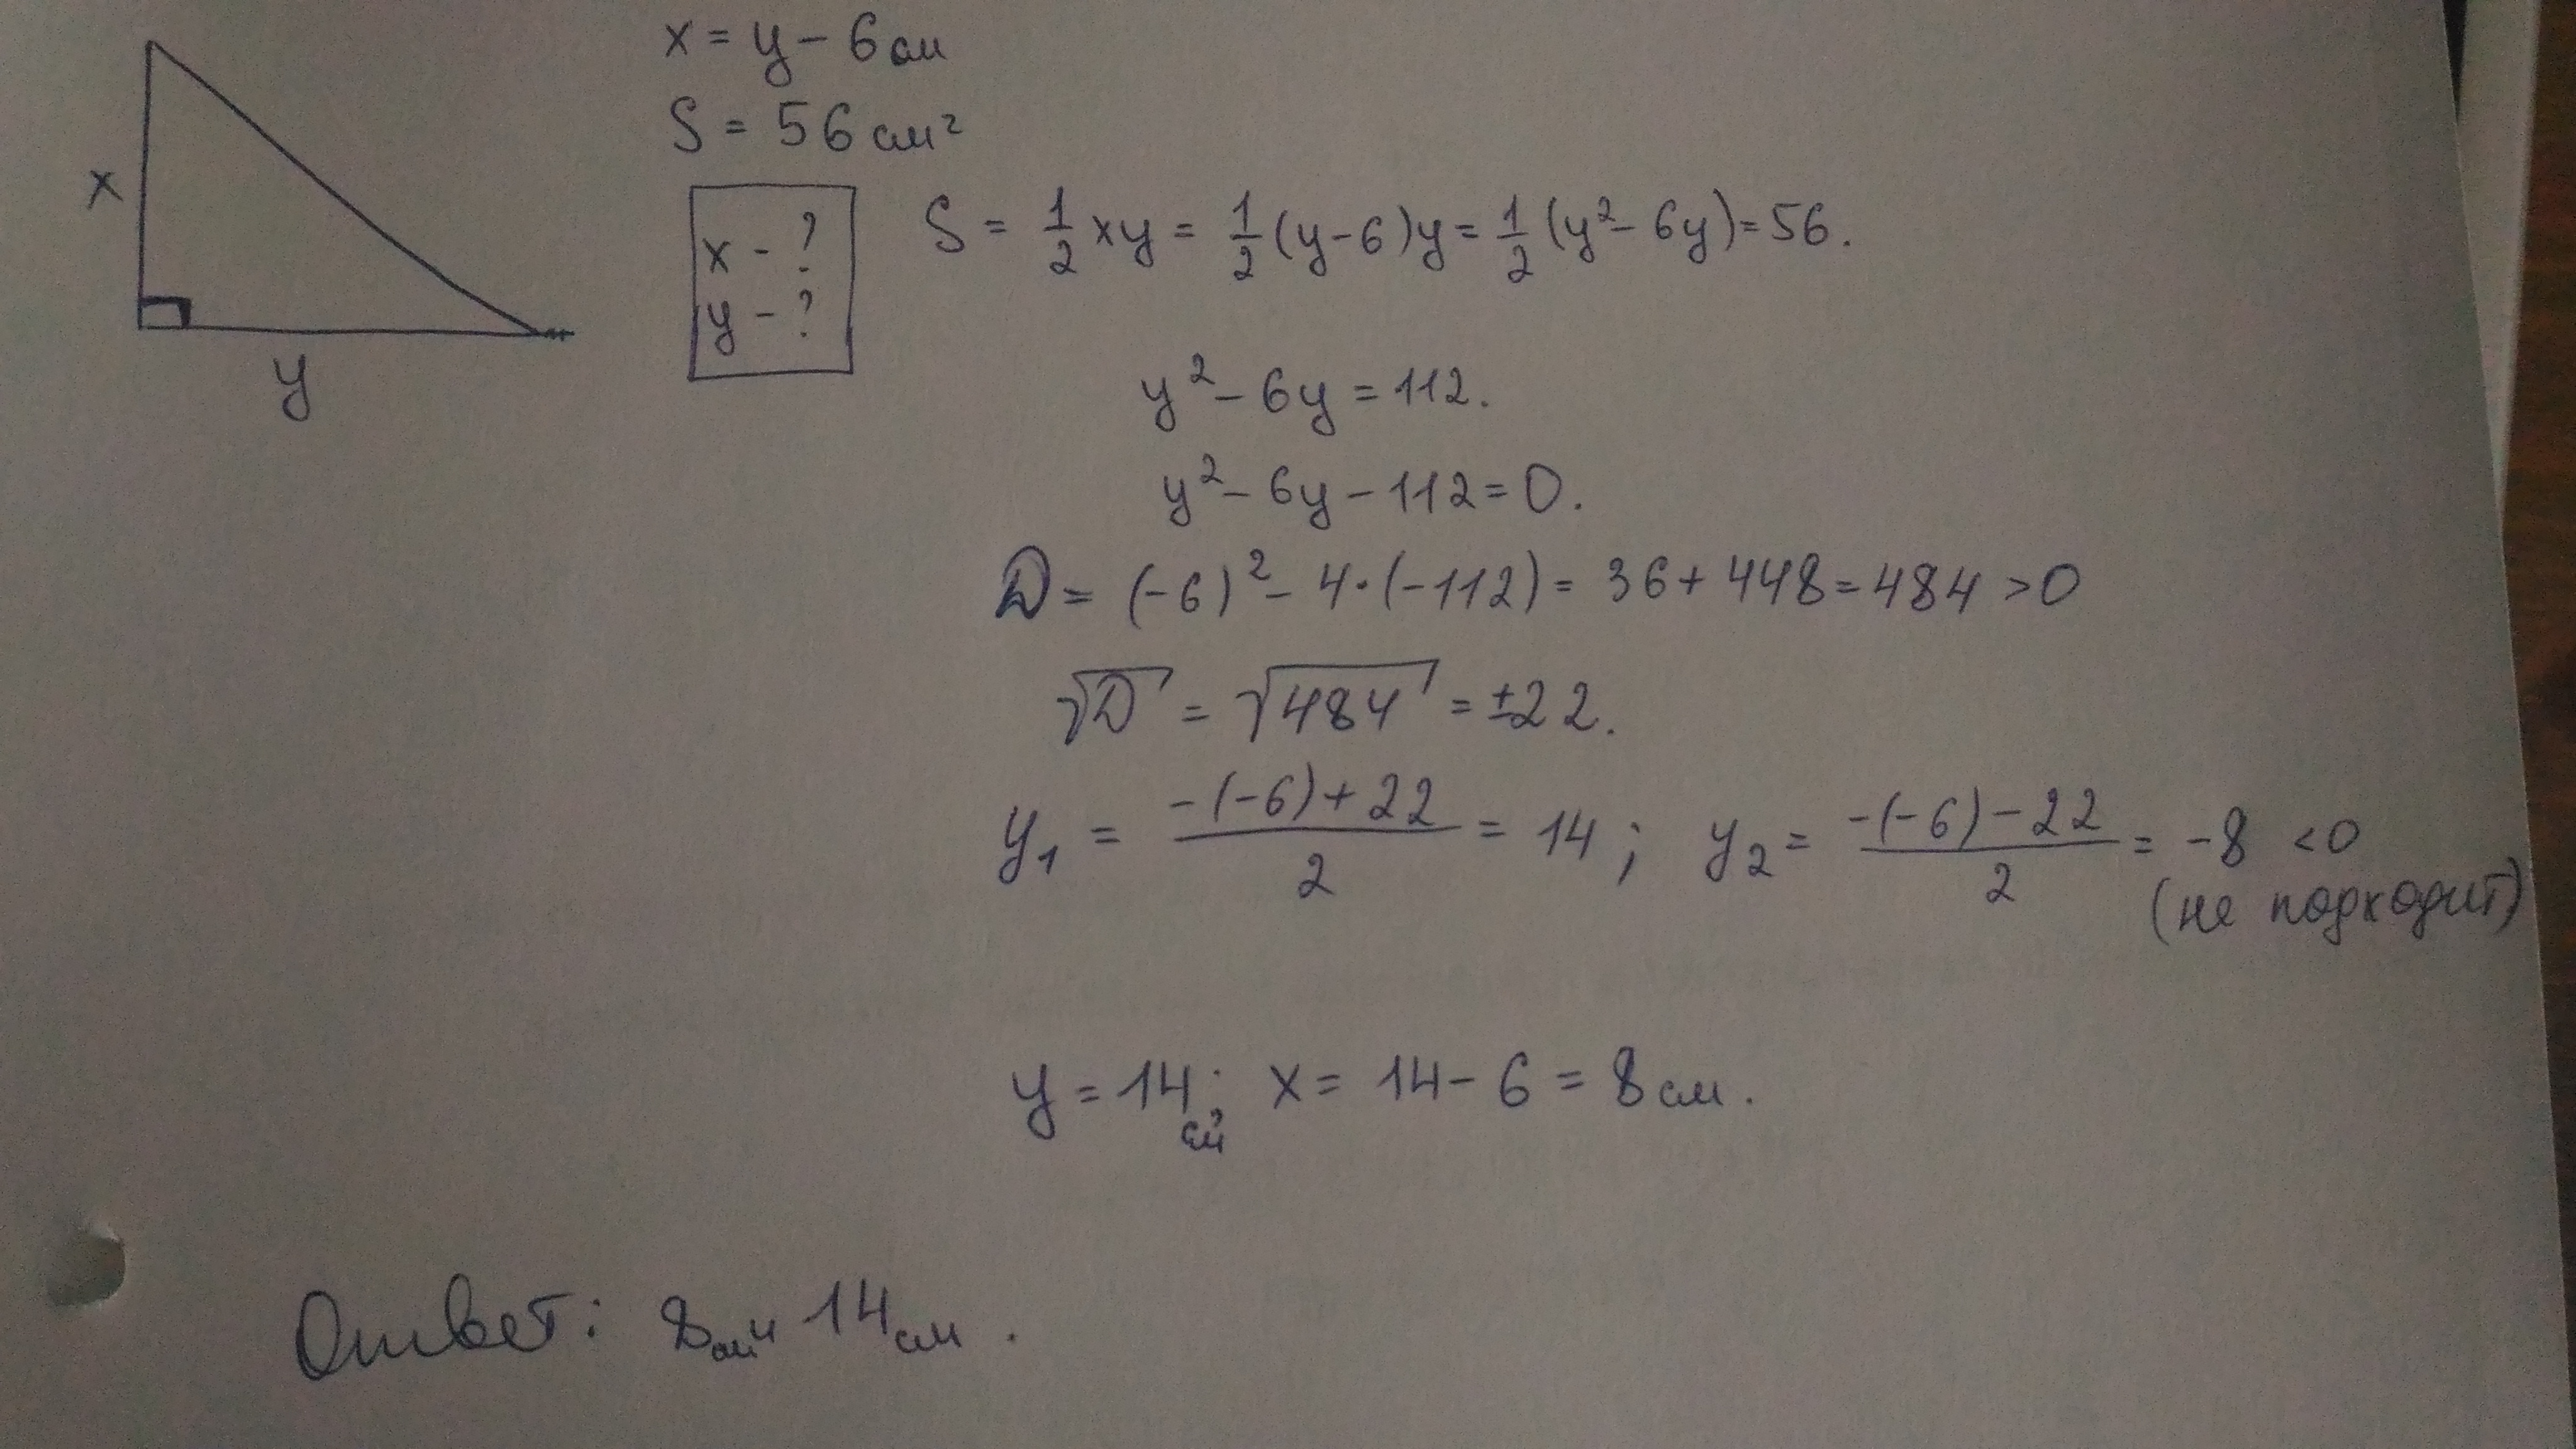 x = y - 6 см
S = 56 см²
x
x - ?
y - ?
S = 1/2 xy = 1/2 (y-6)y = 1/2 (y² - 6y) = 56.
y
y² - 6y = 112.
y² - 6y - 112 = 0.
D = (-6)² - 4·(-112) = 36 + 448 = 484 > 0
√D = √484 = ±22.
y₁ = (-(-6)+22)/2 = 14; y₂ = (-(-6)-22)/2 = -8 < 0
(не подходит)
y = 14 см; x = 14 - 6 = 8 см.
Ответ: 8 см и 14 см.